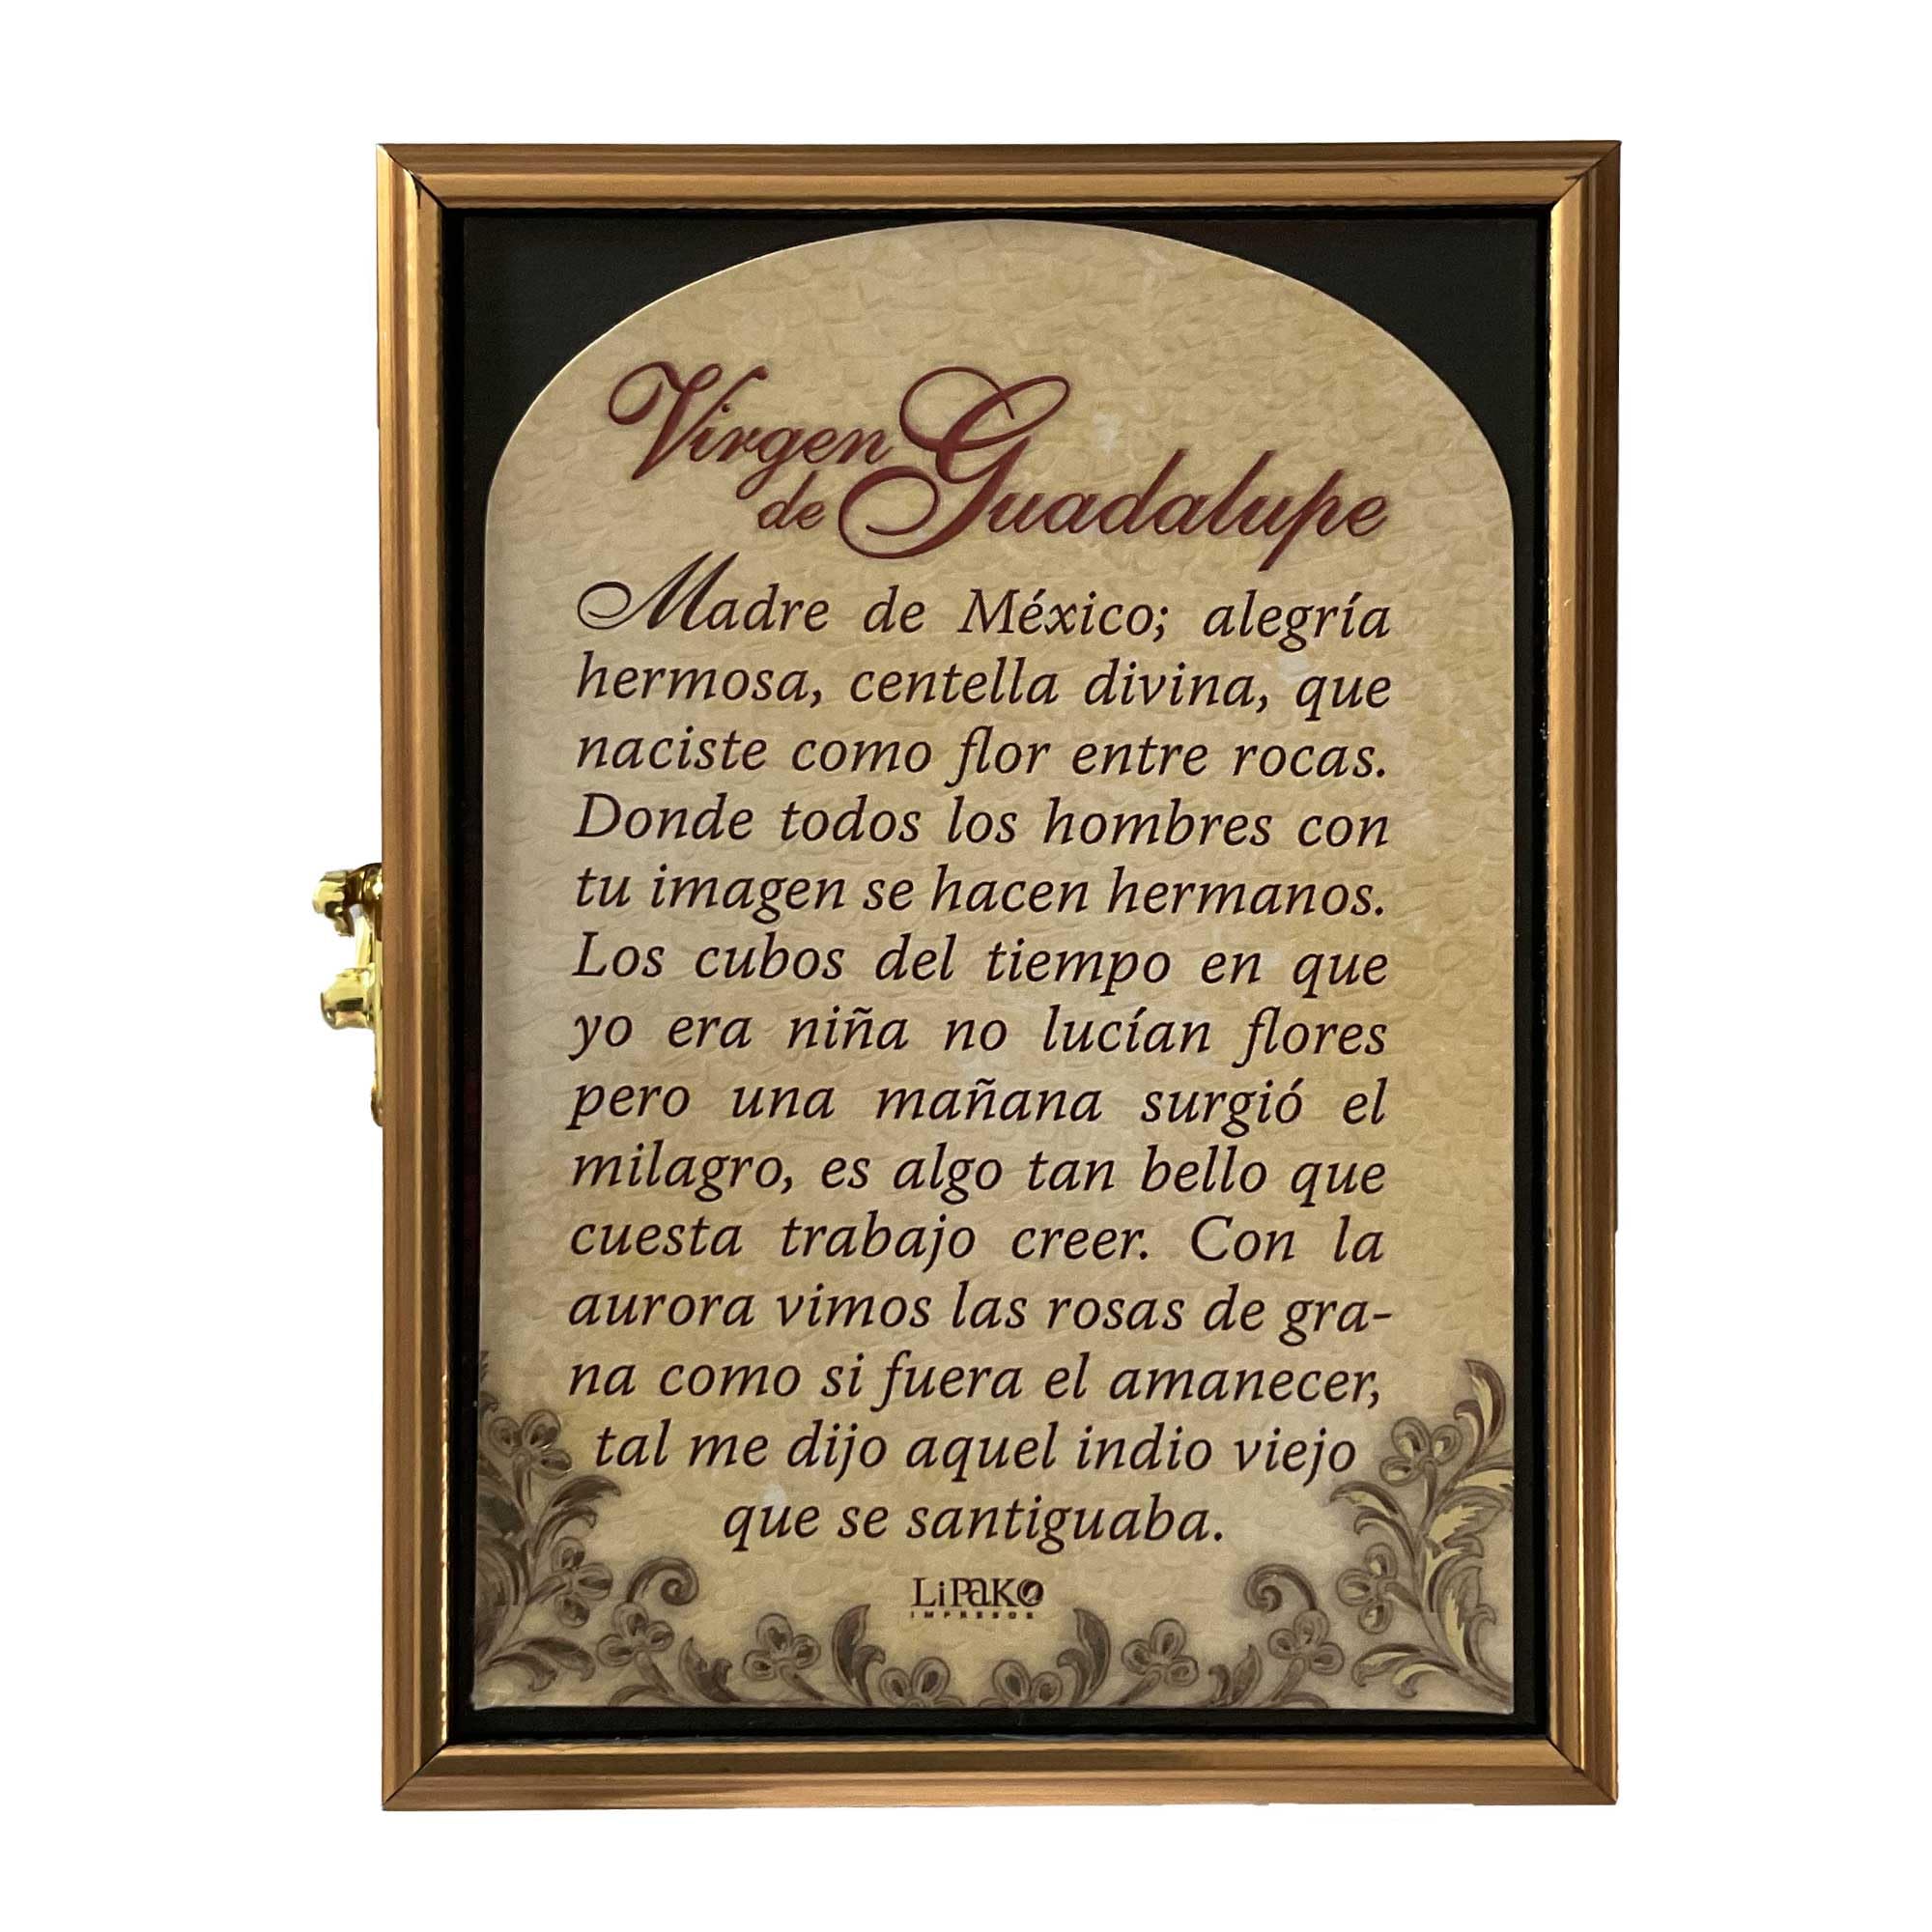 Virgen
de Guadalupe
Madre de México; alegría
hermosa, centella divina, que
naciste como flor entre rocas.
Donde todos los hombres con
tu imagen se hacen hermanos.
Los cubos del tiempo en que
yo era niña no lucían flores
pero una mañana surgió el
milagro, es algo tan bello que
cuesta trabajo creer. Con la
aurora vimos las rosas de gra-
na como si fuera el amanecer,
tal me dijo aquel indio viejo
que se santiguaba.
LiPaKo
IMPRESOS